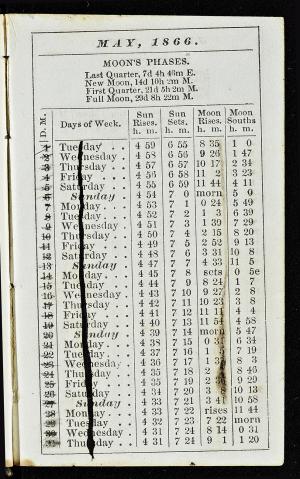 MAY, 1866.
MOON'S PHASES.
Last Quarter, 7d 4h 46m E.
New Moon, 14d 10h 2m M.
First Quarter, 21d 5h 2m M.
Full Moon, 29d 8h 22m M.
D. M. Days of Week. Sun Rises. Sun Sets. Moon Rises. Moon Souths
h. m. h. m. h. m. h. m.
Tuesday . . 4 59 6 55 8 35 1 0
Wednesday . 4 58 6 56 9 26 1 47
Thursday . . 4 57 6 57 10 17 2 34
Friday . . . 4 56 6 58 11 2 3 23
Saturday . . 4 55 6 59 11 44 4 11
Sunday 4 54 7 0 morn 5 0
Monday . . . 4 53 7 1 0 24 5 49
Tuesday . . 4 52 7 2 1 3 6 39
Wednesday . 4 51 7 3 1 39 7 29
Thursday . . 4 50 7 4 2 15 8 20
Friday . . . 4 49 7 5 2 52 9 13
Saturday . . 4 48 7 6 3 31 10 8
Sunday 4 47 7 7 4 33 11 5
Monday . . . 4 45 7 8 sets 0 5e
Tuesday . . 4 44 7 9 8 24 1 7
Wednesday . 4 43 7 10 9 27 2 8
Thursday . . 4 42 7 11 10 23 3 8
Friday . . . 4 41 7 12 11 11 4 4
Saturday . . 4 40 7 13 11 54 4 58
Sunday 4 39 7 14 morn 5 47
Monday . . . 4 38 7 15 0 33 6 34
Tuesday . . 4 37 7 16 1 5 7 19
Wednesday 4 36 7 17 1 8 3
Thursday . . 4 35 7 18 2 8 46
Friday . . . 4 35 7 19 2 9 29
Saturday . . 4 34 7 20 3 10 13
Sunday 4 33 7 21 3 10 58
Monday . . . 4 33 7 22 rises 11 44
Tuesday . . 4 32 7 23 7 22 morn
Wednesday . 4 31 7 24 8 14 0 31
Thursday . . 4 31 7 24 9 1 1 20